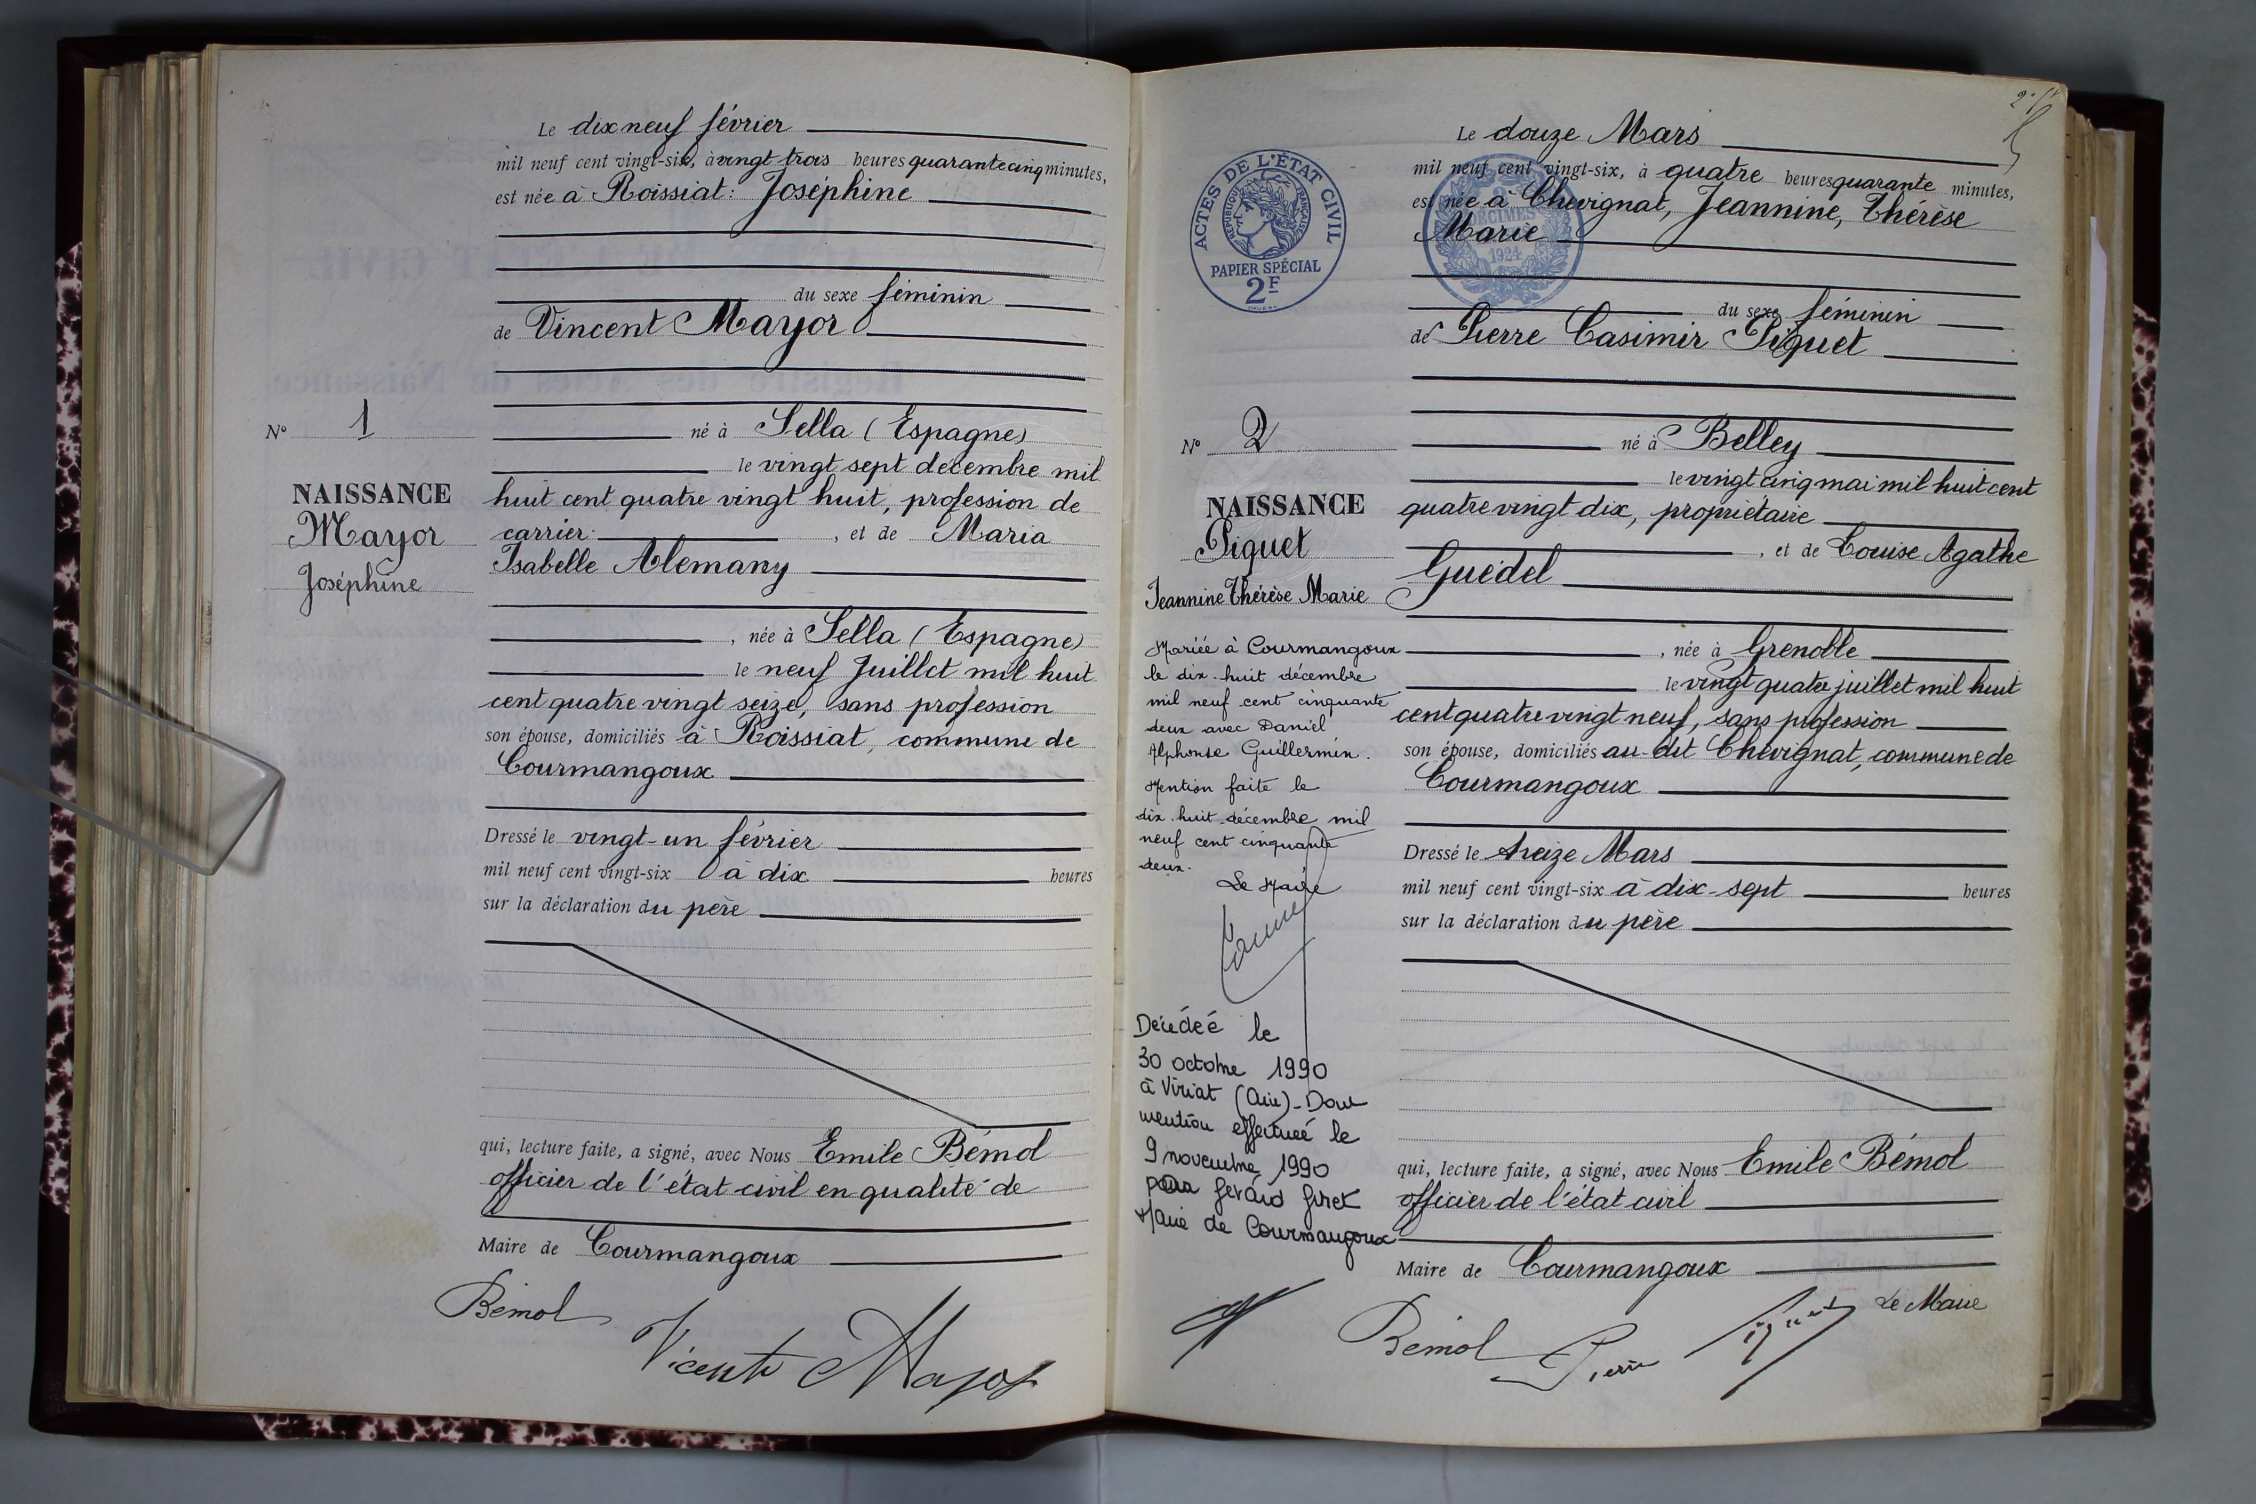 Le dix neuf février
mil neuf cent vingt-six, à vingt trois heures quarante cinq minutes,
est née à Roissiat: Joséphine
du sexe féminin
de Vincent Mayor
né à Sella (Espagne)
le vingt sept décembre mil
huit cent quatre vingt huit, profession de
carrier, et de Maria
Isabelle Alemany
, née à Sella (Espagne)
le neuf Juillet mil huit
cent quatre vingt seize, sans profession
son épouse, domiciliés à Roissiat, commune de
Courmangoux
Dressé le vingt-un février
mil neuf cent vingt-six à dix heures
sur la déclaration du père
qui, lecture faite, a signé, avec Nous Emile Bémol
officier de l'état civil en qualité de
Maire de Courmangoux
Bémol
Vicente Mayor
N° 1
NAISSANCE
Mayor
Joséphine
ACTES DE L'ÉTAT CIVIL
RÉPUBLIQUE FRANÇAISE
PAPIER SPÉCIAL
2F
DÉCIMES
1924
Le douze Mars
mil neuf cent vingt-six, à quatre heures quarante minutes,
est née à Chevignat, Jeannine, Thérèse
Marie
du sexe féminin
de Pierre Casimir Piquet
né à Belley
le vingt cinq mai mil huit cent
quatre vingt dix, propriétaire
, et de Louise Agathe
Guédel
, née à Grenoble
le vingt quatre juillet mil huit
cent quatre vingt neuf, sans profession
son épouse, domiciliés au-dit Chevignat, commune de
Courmangoux
Dressé le treize Mars
mil neuf cent vingt-six à dix-sept heures
sur la déclaration du père
qui, lecture faite, a signé, avec Nous Emile Bémol
officier de l'état civil
Maire de Courmangoux
Le Maire
Bémol Pierre Piquet
N° 2
NAISSANCE
Piquet
Jeannine Thérèse Marie
Mariée à Courmangoux
le dix-huit décembre
mil neuf cent cinquante
deux avec Daniel
Alphonse Guillermin.
Mention faite le
dix-huit décembre mil
neuf cent cinquante
deux.
Le Maire
Décédée le
30 octobre 1990
à Viriat (Ain)- Dont
mention effectuée le
9 novembre 1990
par Gérard Giret
Maire de Courmangoux